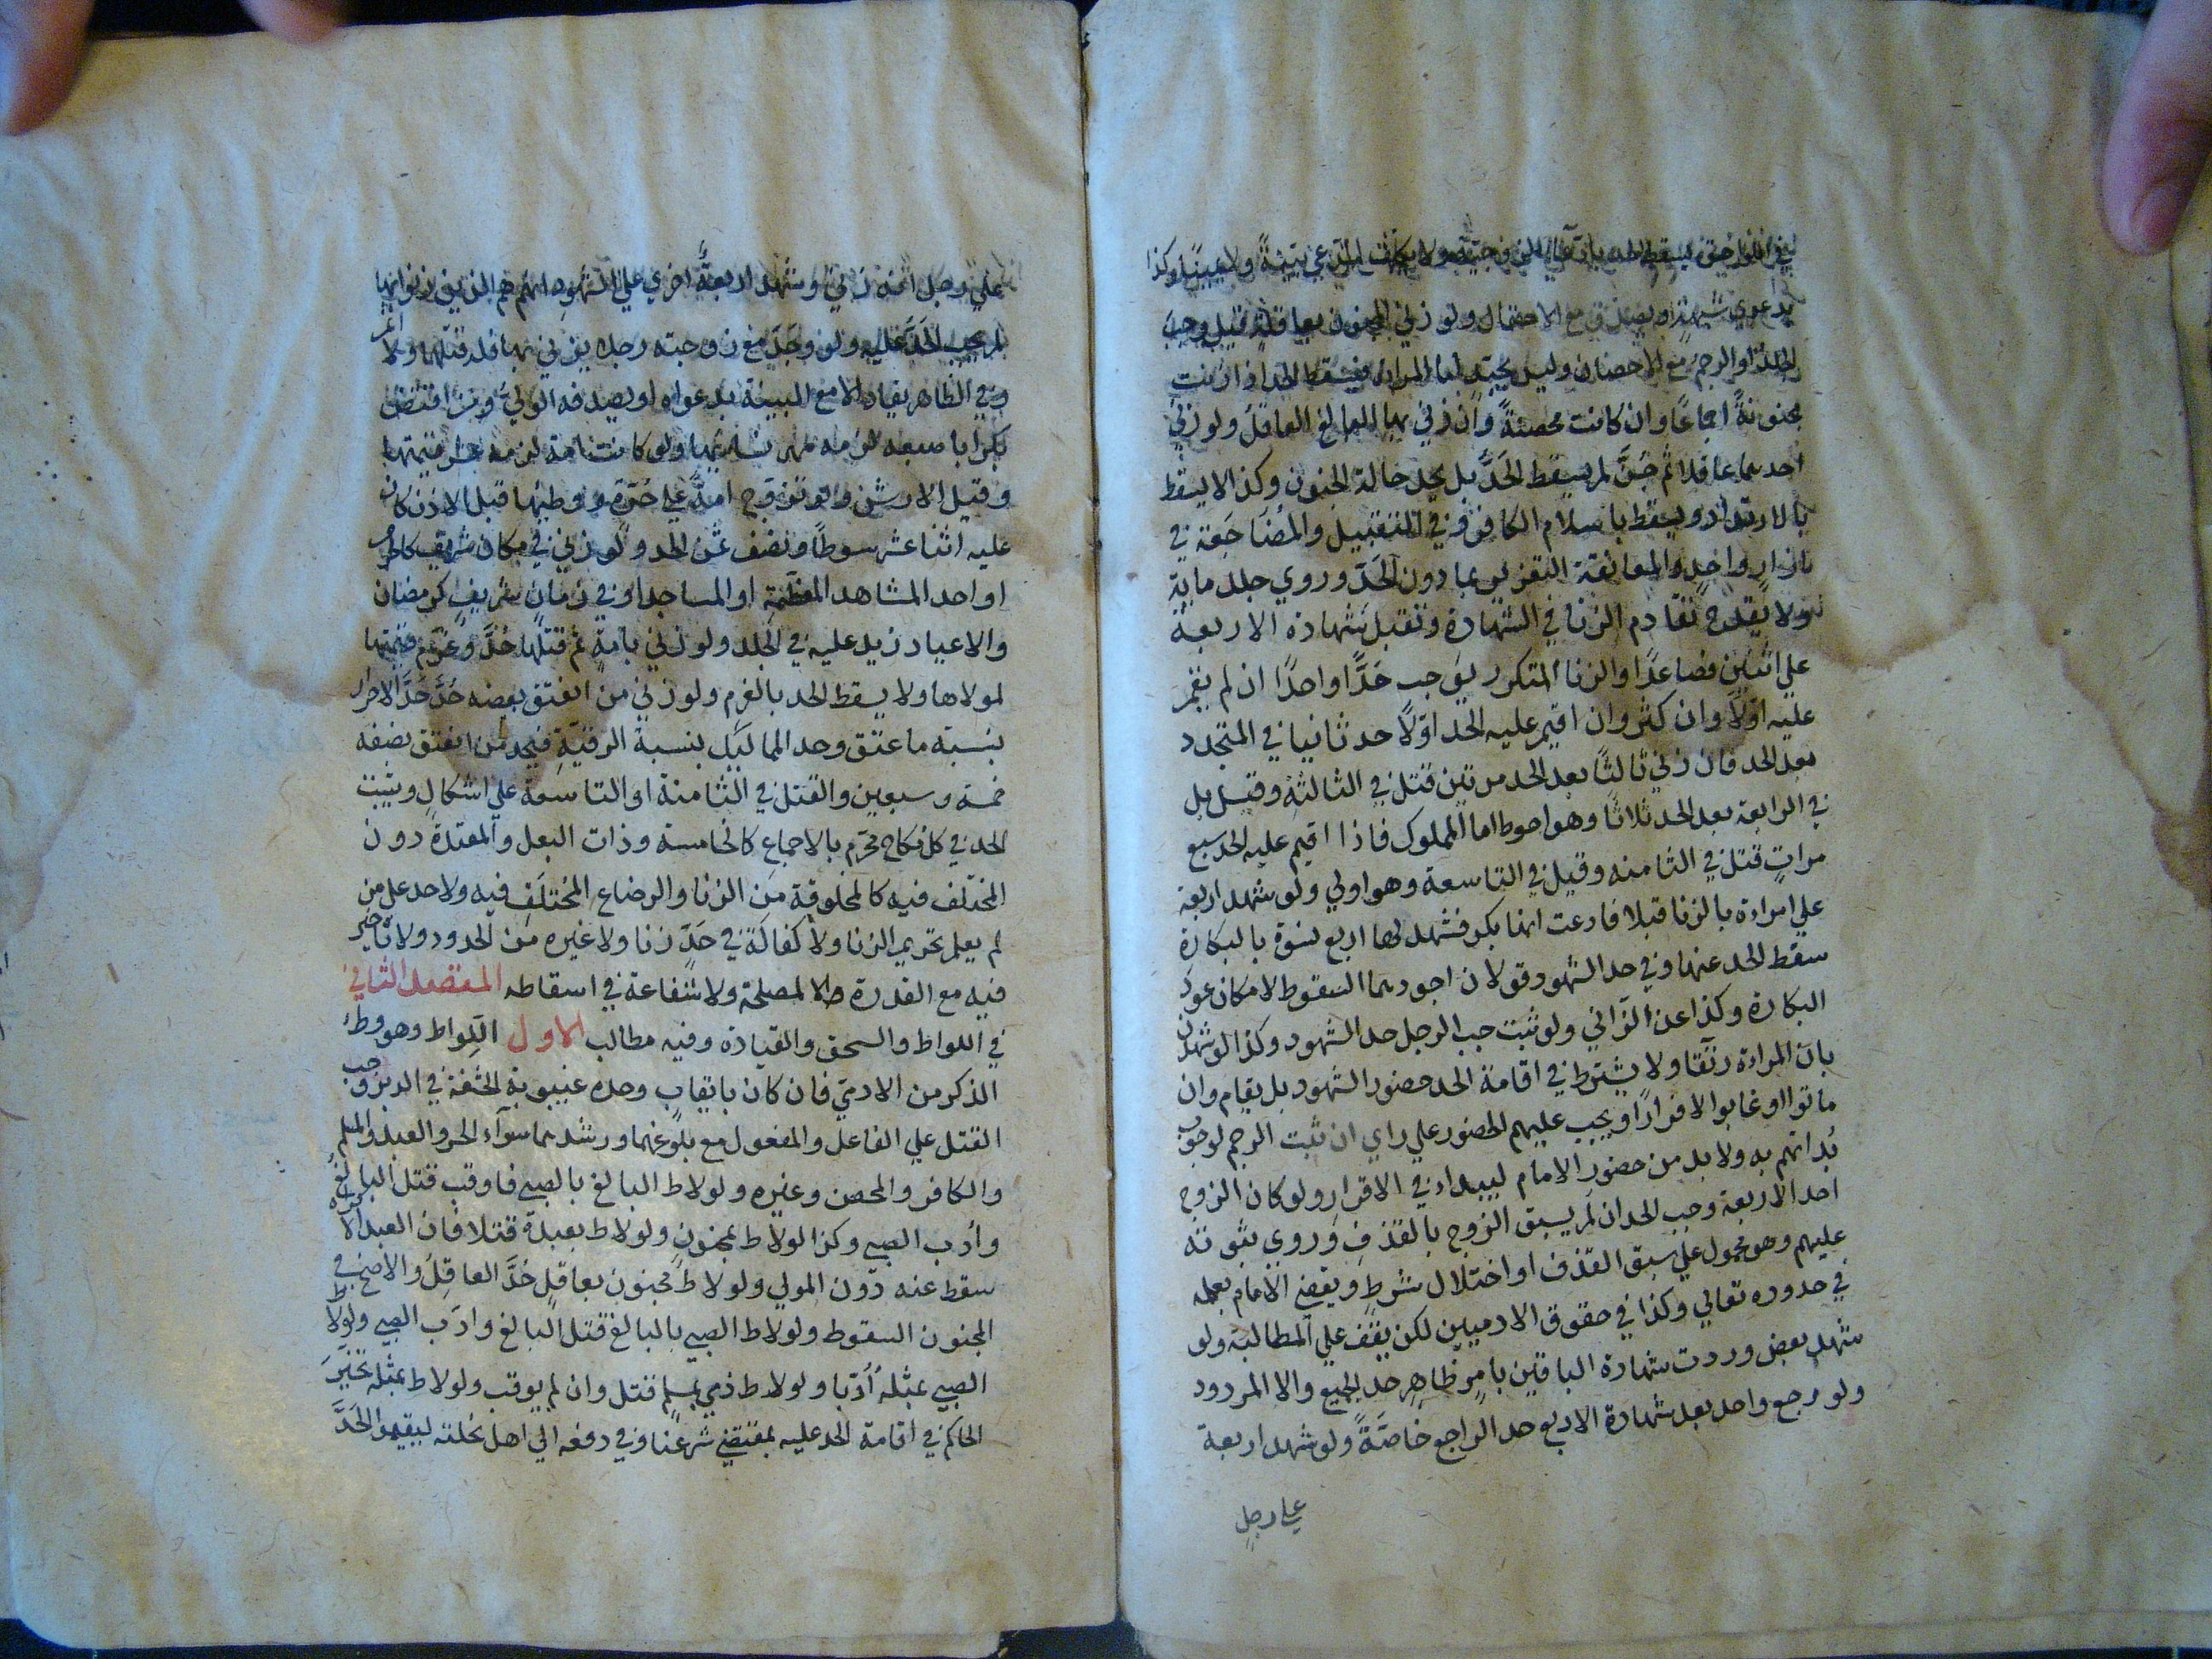 يسقط الحد بادعاء الزوجية ولا يكلف المدعي بينة ولا يمينا وكذا
بدعوي شبهة ويصدق مع الاحتمال ولو زني المجنون بعاقلة قيل وجب
الجلد او الرجم مع الاحصان وليس بجيد اما المراة فيسقط الحد اذا زنت
مجنونةً اجماعًا وان كانت محصنةً وان زني بها البالغ العاقل ولو زني
احدهما عاقلا ثم جُنَّ لم يسقط الحَدُّ بل يحد حالة الجنون وكذا لا يسقط
بالارتداد ويسقط باسلام الكافر وفي التقبيل والمُضَاجَعة في
ازارٍ واحدٍ والمعانقة التعزير بما دون الحَدّ وروي جلد ماية
ولا يقدح تقادم الزنا في الشهادة وتقبل شهادة الاربعة
علي اثنين فصاعدًا والزنا المتكرر يوجب حَدًّا واحدًا ان لم يقم
عليه اوّلًا وان كثر وان اقيم عليه الحد اوّلًا حد ثانيا في المتجدد
بعد الحد فان زني ثالثًا بعد الحد مرتين قتل في الثالثه وقيل بل
في الرابعة بعد الحد ثلاثًا وهو احوط اما المملوك فاذا اقيم عليه الحد سبع
مراتٍ قتل في الثامنه وقيل في التاسعة وهو اولي ولو شهد اربعة
علي امراءة بالزنا قبلا فادعت انها بكر فشهد لها اربع نسوة بالبكارة
سقط الحد عنها وفي حد الشهود قولان اجودهما السقوط لامكان عود
البكارة وكذا عن الزاني ولو ثبت جب الرجل حد الشهود وكذا لو شهدن
بان المراءة رتقا ولا يشترط في اقامة الحد حضور الشهود بل يقام وان
ماتوا او غابوا لا فرارًا ويجب عليهم الحضور علي راي ان ثبت الرجم لوجوب
بُداتهم به ولا بد من حضور الامام ليبداء في الاقرار ولو كان الزوج
احد الاربعة وجب الحد ان لم يسبق الزوج بالقذف وروي ثبوته
عليهم وهو محمول علي سبق القذف او اختلال شرطٍ ويقضي الامام بعلمه
في حدوده تعالي وكذا في حقوق الادميين لكن يقف علي المطالبة ولو
شهد بعض وردت شهادة الباقين بامرٍ ظاهرٍ حد الجميع والا المردود
ولو رجع واحد بعد شهادة الاربع حد الراجع خاصَّةً ولو شهد اربعة
علي رجلٍ
علي رجل انه زني وشهد اربعةٌ اخري علي الشهود انهم هم الذين زنوا بها
لم يجب الحَدُّ عليه ولو وجَدَ مع زوجته رجلا يزني بها فله قتلهما ولا اثم
وفي الظاهر يقاد الا مع البينة بدعواه او يصدقه الوليّ ومن افتض
بكرا باصبعه لزمه مهر نسائها ولو كانت امة لزمه عشر قيمتها
وقيل الارش ولو تزوج امةً علي حُرّةٍ ووطيها قبل الاذن كان
عليه اثنا عشر سوطًا ونصف ثمن الحد ولو زني في مكان شريف كالحرم
او احد المشاهد المعظّمة او المساجد او في زمان شريفٍ كرمضان
والاعياد زيد عليه في الجلد ولو زني بامةٍ ثم قتلها حُدَّ وغرّم قيمتها
لمولاها ولا يسقط الحد بالغرم ولو زني من انعتق بعضه حُدَّ حَدَّ الاحرار
بنسبة ما عتق وحد المماليك بنسبة الرقيّةِ فيحد من انعتق نصفه
خمسة وسبعين والقتل في الثامنة او التاسعة علي اشكالٍ ويثبت
الحد في كل نكاح محرّم بالاجماع كالخامسة وذات البعل والمعتدة دون
المختلف فيه كالمخلوقة من الزنا والرضاع المختلَفِ فيه ولا حد علي من
لم يعلم تحريم الزنا ولا كفالة في حَدّ زنا ولا غيره من الحدود ولا تاخير
فيه مع القدرة الا لمصلحة ولا شفاعة في اسقاطه المقصد الثاني
في اللواط والسحق والقيادة وفيه مطالب الاول اللِواط وهو وطء
الذكر من الادمي فان كان بايقابٍ وحده غيبوبة الحشفة في الدبر وجب
القتل علي الفاعل والمفعول مع بلوغهما ورشدهما سواءٌ الحر والعبد والمسلم
والكافر والمحصن وغيره ولو لاط البالغ بالصبي فاوقب قتل البالغ
وأدب الصبي وكذا لو لاط بمجنونٍ ولو لاط بعبده قتلا فان العبد الاكراه
سقط عنه دون المولي ولو لاط مجنون بعاقل حُدَّ العاقلُ والاصح في
المجنون السقوط ولو لاط الصبي بالبالغ قتل البالغ وادَب الصبي ولو لاط
الصبي بمثله أُدّبا ولو لاط ذمي بمسلمٍ قتل وان لم يوقب ولو لاط بمثله تخيّرَ
الحاكم في اقامة الحد عليه بمقتضي شرعنا وفي دفعه الي اهل نحلته ليقيموا الحَدَّ